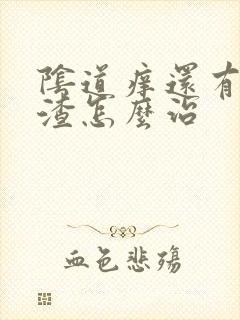 陰道痒還有
渣怎麼治
血色悲殤